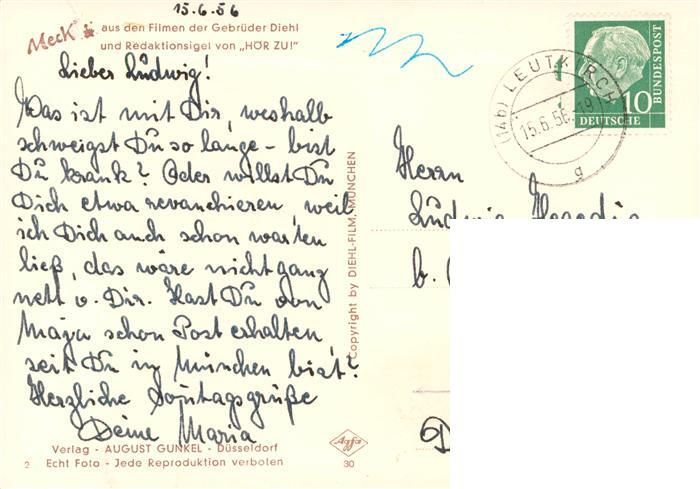 15.6.56
Mecki
aus den Filmen der Gebrüder Diehl
und Redaktionsigel von „HÖR ZU!"
Lieber Ludwig!
Was ist mit Dir, weshalb
schweigst Du so lange - bist
Du krank? Oder willst Du
Dich etwa revanchieren, weil
ich Dich auch schon warten
ließ, das wäre nicht ganz
nett v. Dir. Hast Du von
Maja schon Post erhalten
seit Du in München bist?
Herzliche Sonntagsgrüße
Deine Maria
Verlag - AUGUST GUNKEL - Düsseldorf
2 Echt Foto - Jede Reproduktion verboten 30
Agfa
Copyright by DIEHL-FILM, MÜNCHEN
(14b) LEUTKIRCH
15.6.56.-19
g
10
DEUTSCHE
BUNDESPOST
Herrn
Ludwig
b.